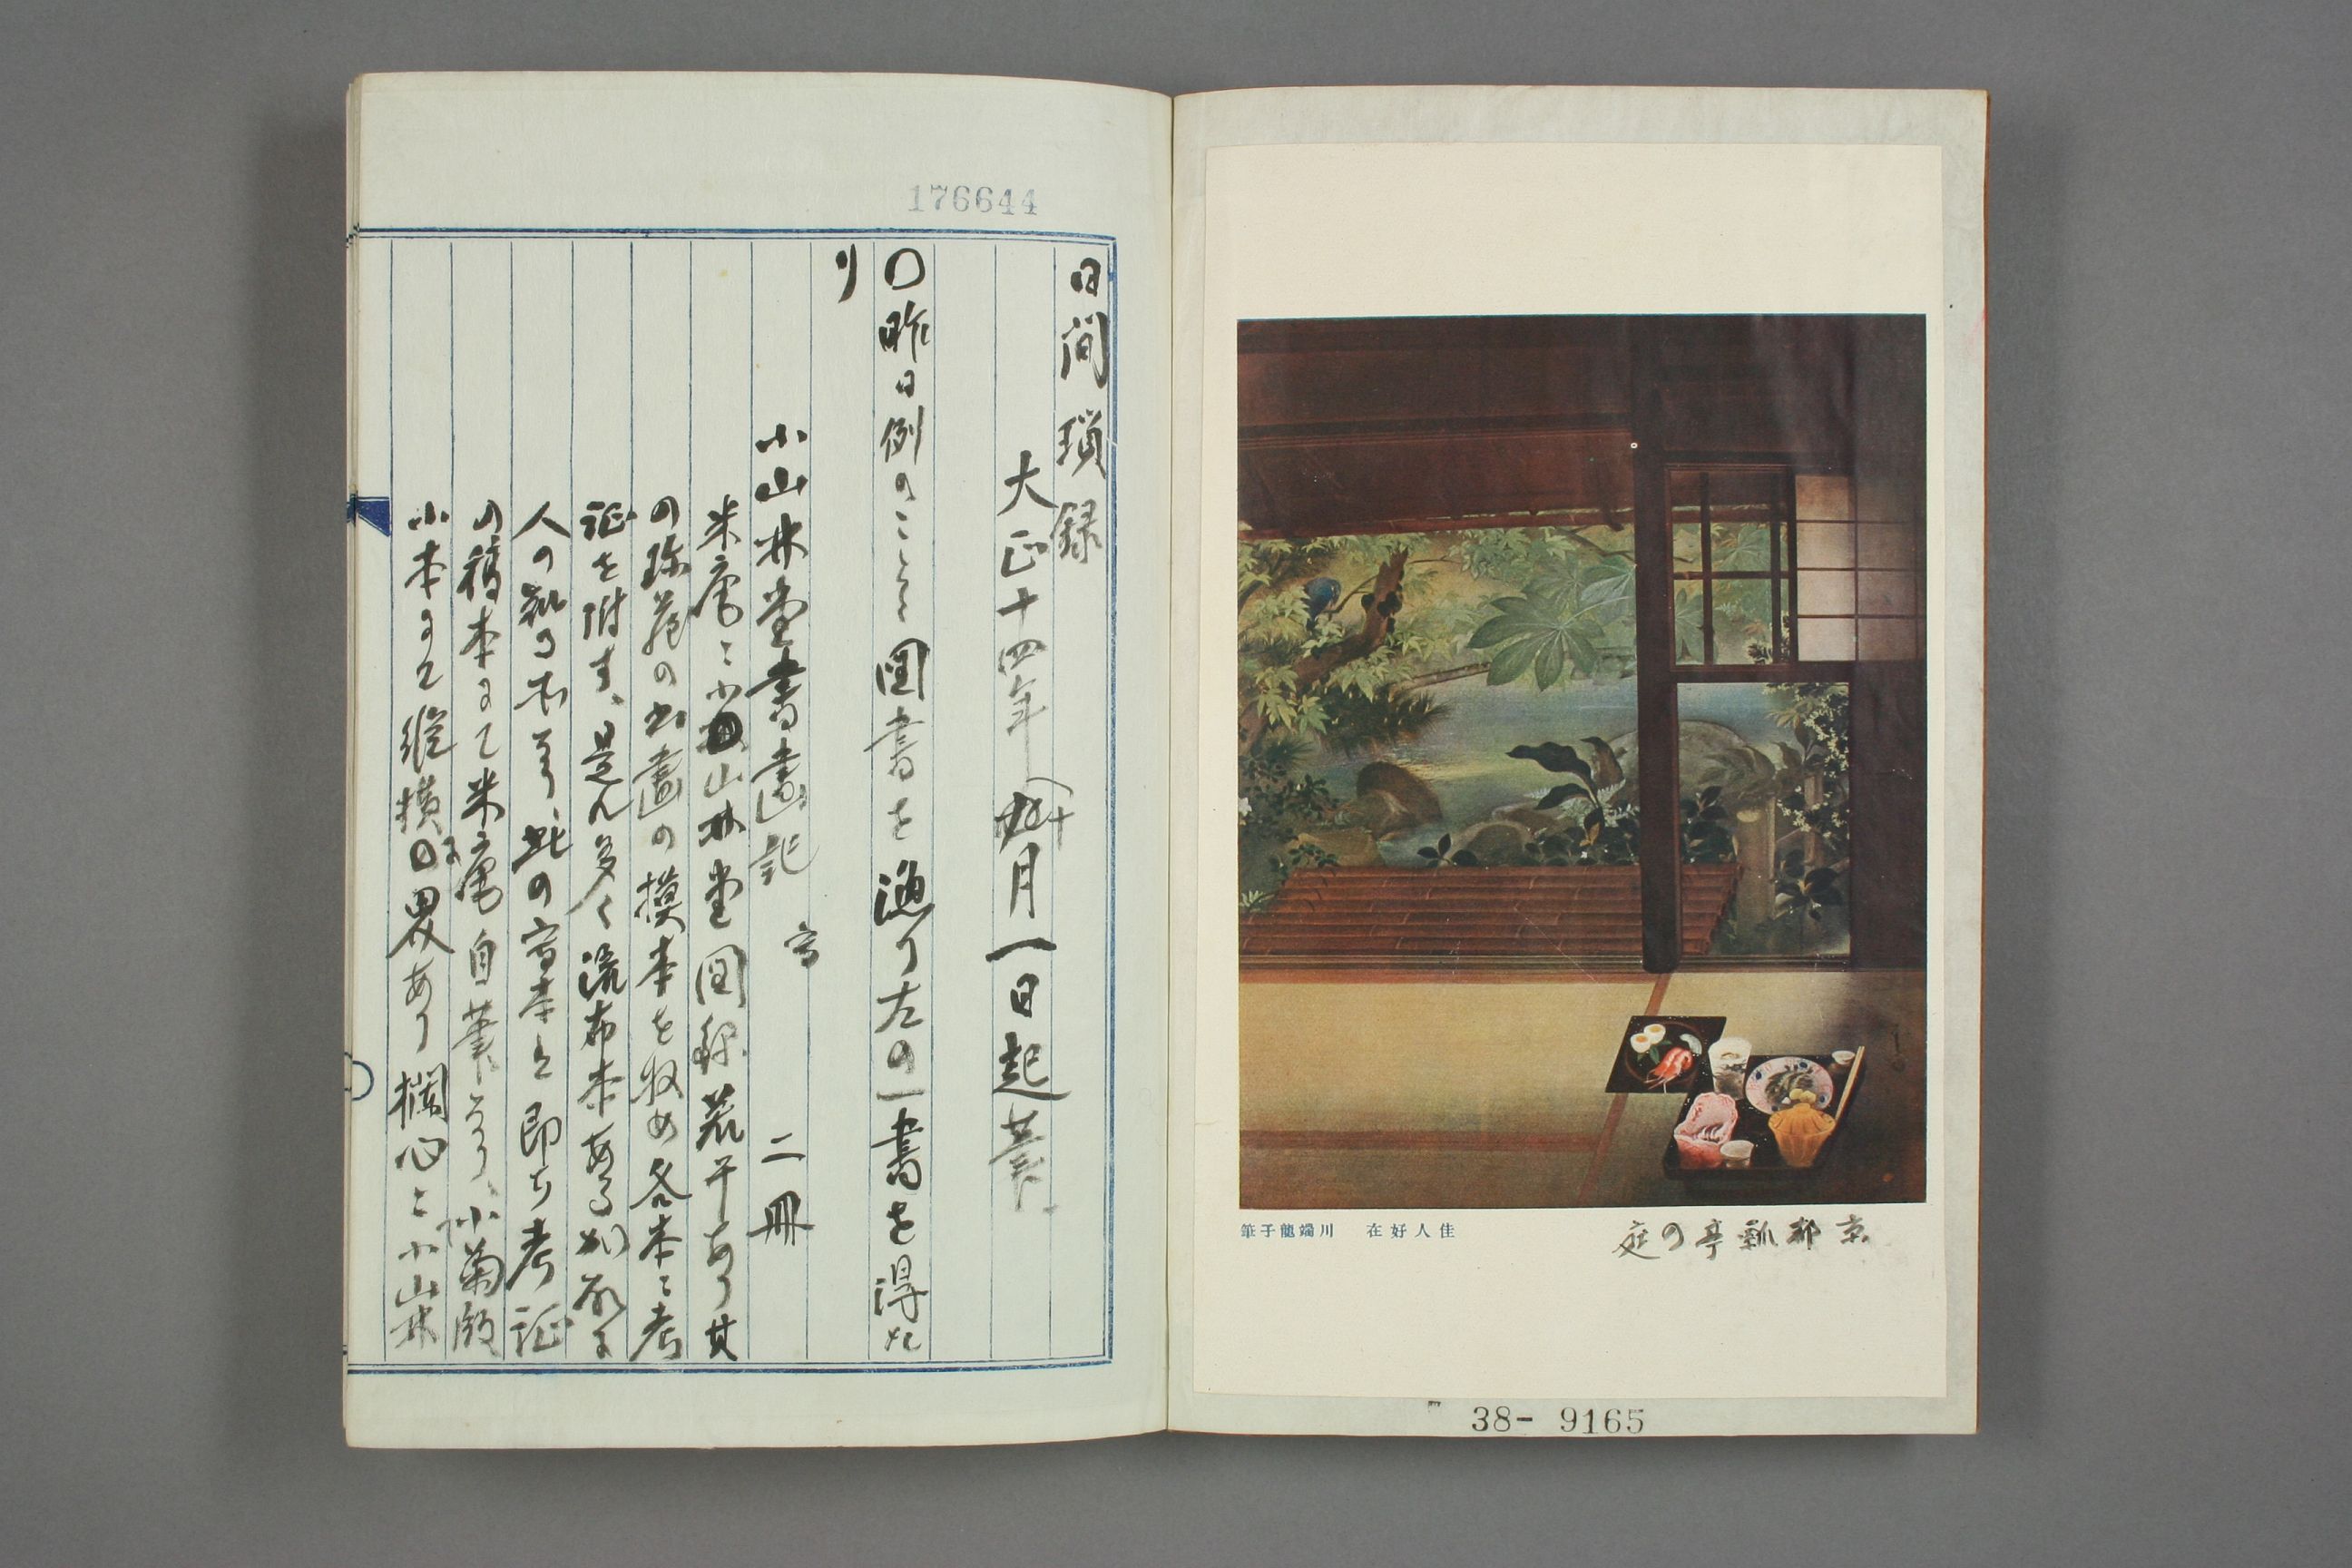 佳人好在　川端龍子筆
京都瓢亭の庭
38- 9165
176644
日間瑣録
大正十四年十月一日起筆
〇昨日例のこと〻図書を漁り左の一書を得た
り
小山林堂書画記　写　二冊
米庵ニ小山林堂図録若干あり其
の珍蔵の書画の摸本を収め各本ニ考
証を附す、是ハ多く流布本ある
人の知る所なり、此の写本ハ即ち考証
の稿本にて米庵自筆なり、
小本にて縦横に界あり欄心ニ小山林